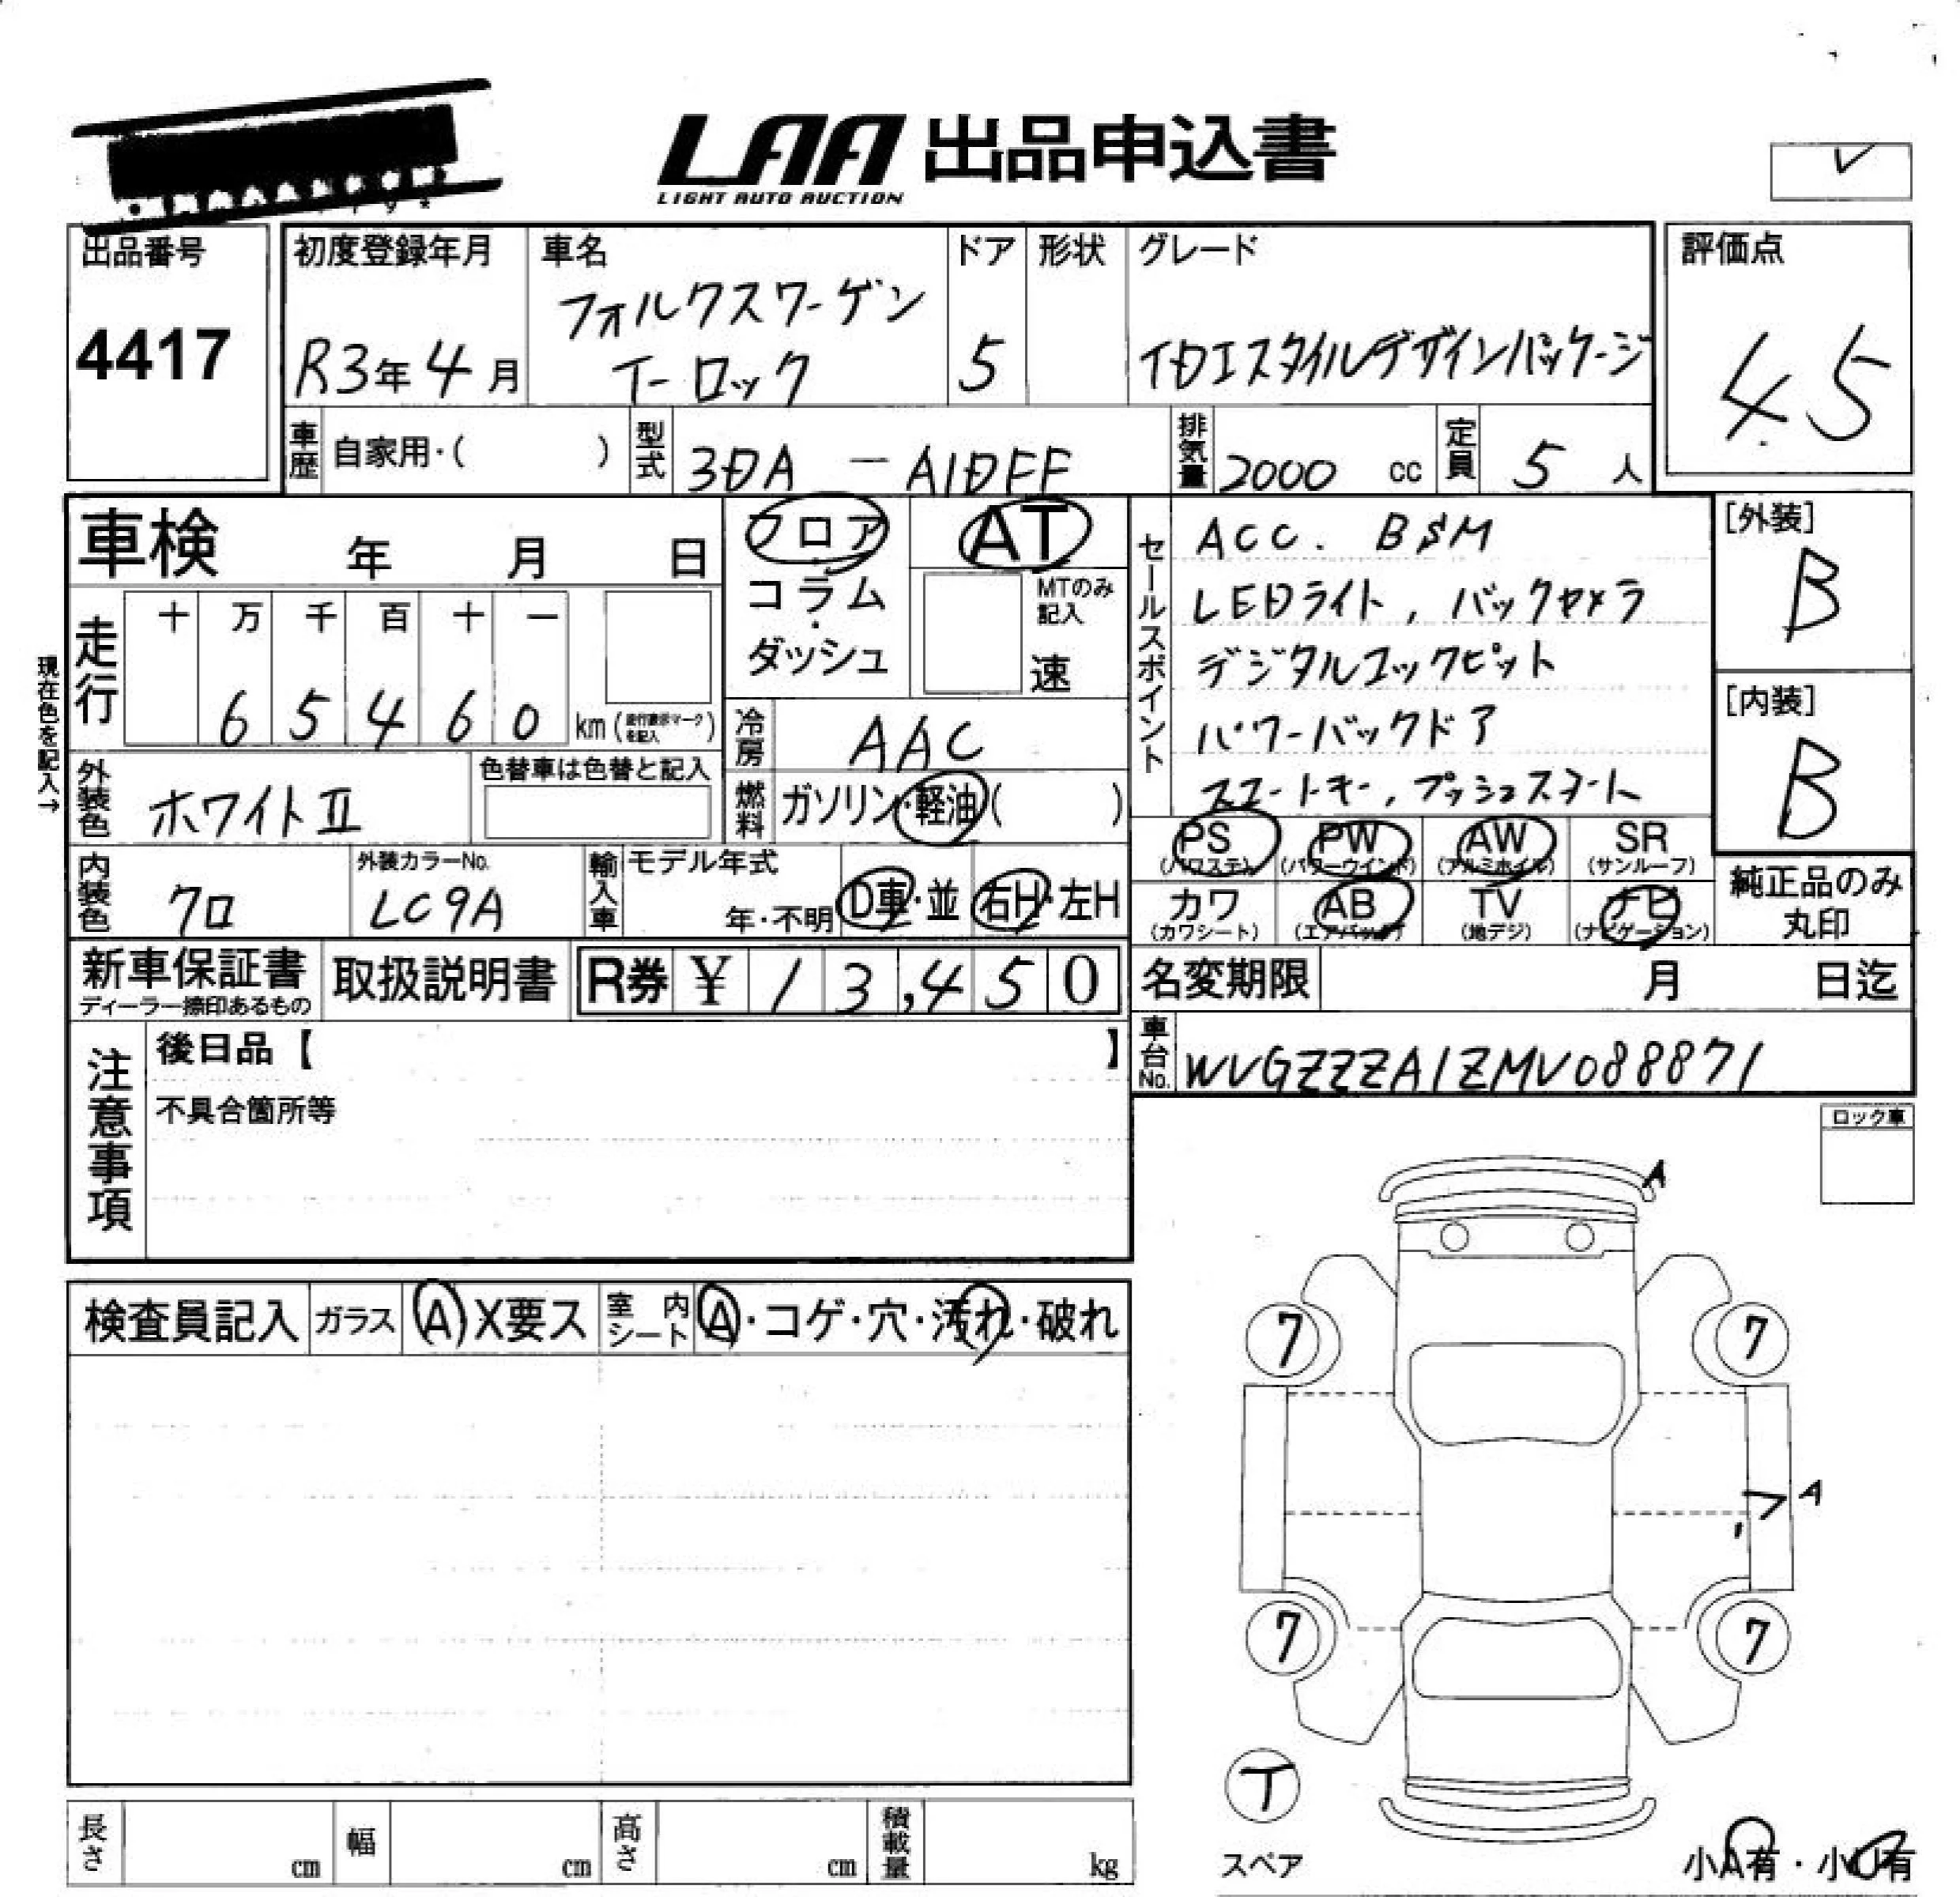 LAA 出品申込書
LIGHT AUTO AUCTION
出品番号
4417
初度登録年月
R3年4月
車名
フォルクスワーゲン
T-ロック
ドア
5
形状
グレード
TDIスタイルデザインパッケージ
評価点
4.5
車歴 自家用・( )
型式 3DA-A1DFF
排気量 2000 cc
定員 5 人
車検 年 月 日
フロア・コラム・ダッシュ
AT
MTのみ記入
速
セールスポイント
ACC. BSM
LEDライト, バックカメラ
デジタルコックピット
パワーバックドア
スマートキー, プッシュスタート
[外装]
B
[内装]
B
現在色を記入→
走行
十 万 千 百 十 一
6 5 4 6 0 km (走行表示マークを記入)
冷房 AAC
外装色 ホワイトII
色替車は色替と記入
燃料 ガソリン・軽油( )
PS (パワステ)
PW (パワーウインド)
AW (アルミホイル)
SR (サンルーフ)
カワ (カワシート)
AB (エアバック)
TV (地デジ)
ナビ (ナビゲーション)
純正品のみ丸印
内装色 クロ
外装カラーNo. LC9A
輸入車
モデル年式
年・不明
D車・並
右H・左H
新車保証書
ディーラー捺印あるもの
取扱説明書
R券 ¥13,450
名変期限 月 日迄
車台No. WVGZZZA1ZMV088871
注意事項
後日品【 】
不具合箇所等
ロック車
A
検査員記入 ガラス A X要ス 室内シート A・コゲ・穴・汚れ・破れ
7 7
A
7 7
T
スペア
小A有・小U有
長さ cm 幅 cm 高さ cm 積載量 kg